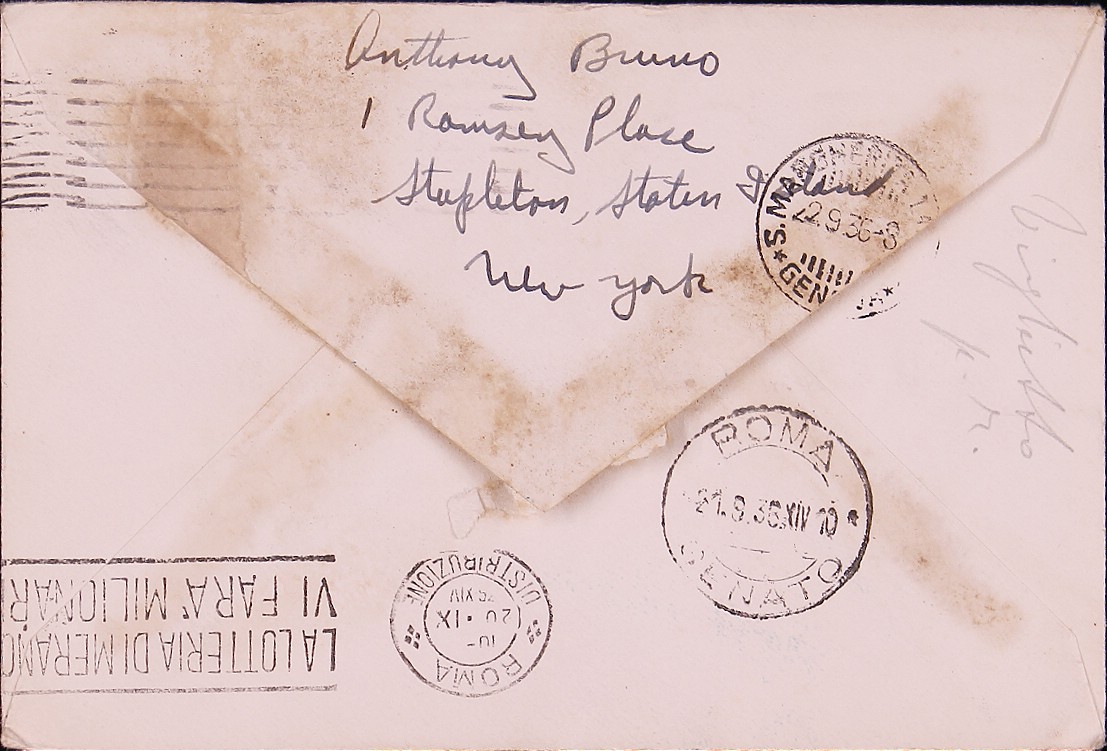 Anthony Bruno
1 Ramsey Place
Stapleton, Staten Island
New York
S. MARGHERITA
22.9.36-8
GENOVA
ROMA
21.9.36.XIV 10
SENATO
ROMA
20 · IX
36 XIV
DISTRIBUZIONE
LA LOTTERIA DI MERANO
VI FARA' MILIONAR